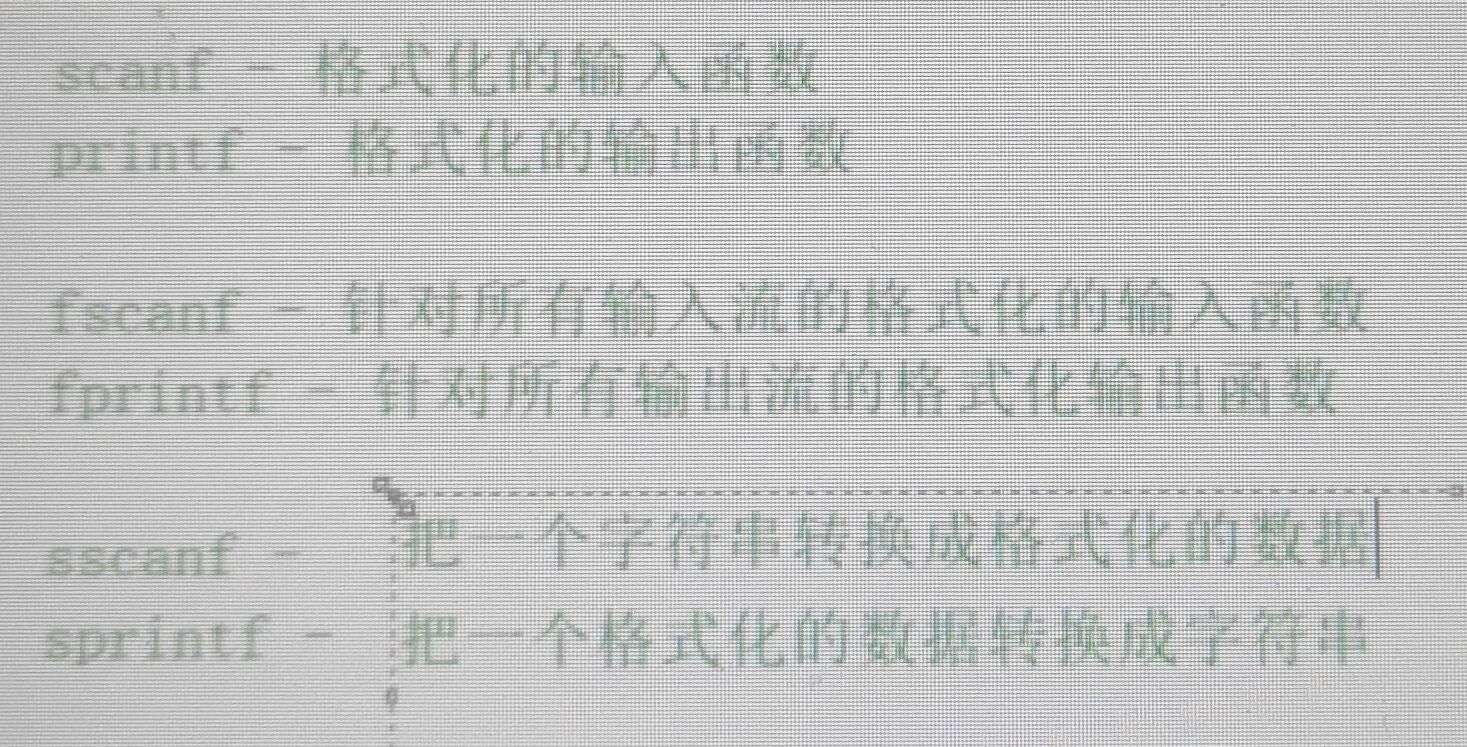 scanf - 格式化的输入函数
printf - 格式化的输出函数
fscanf - 针对所有输入流的格式化的输入函数
fprintf - 针对所有输出流的格式化输出函数
sscanf - 把一个字符串转换成格式化的数据
sprintf - 把一个格式化的数据转换成字符串